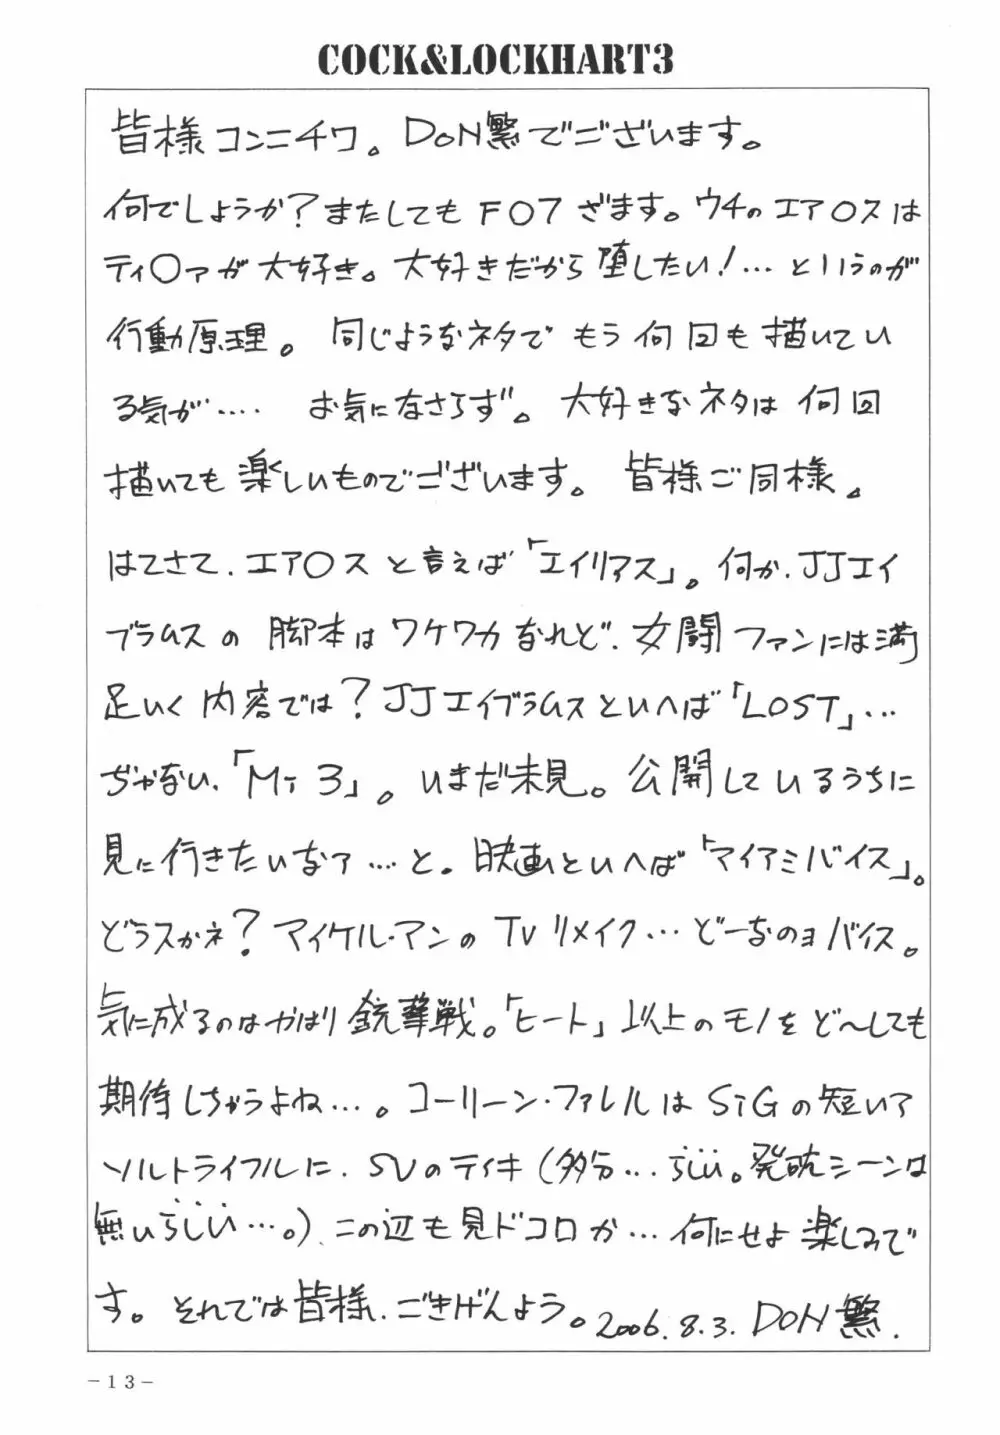 COCK&LOCKHART3
皆様コンニチワ。DON繁でございます。
何でしょうか？またしてもFO7ざます。ウチのエア○スは
ティ○ァが大好き。大好きだから堕したい！…というのが
行動原理。同じようなネタでもう何回も描いてい
る気が‥‥ お気になさらず。大好きなネタは何回
描いても楽しいものでございます。皆様ご同様。
はてさて、エア○スと言えば「エイリアス」。何か、JJエイ
ブラムスの脚本はワケワカなれど、女闘ファンには満
足いく内容では？JJエイブラムスといへば「LOST」…
ぢゃない、「Mi3」。いまだ未見。公開しているうちに
見に行きたいなァ…と。映画といへば「マイアミバイス」。
どうスかネ？マイケル・マンのTVリメイク…どーなのョバイス。
気に成るのはやはり銃撃戦。「ヒート」以上のモノをど〜しても
期待しちゃうよね…。コーリーン・ファレルはSiGの短いア
ソルトライフルに、SVのティキ（多分…らしい。発砲シーンは
無いらしい…。）、この辺も見ドコロか…何にせよ楽しみで
す。それでは皆様、ごきげんよう。2006.8.3. DON繁.
－13－